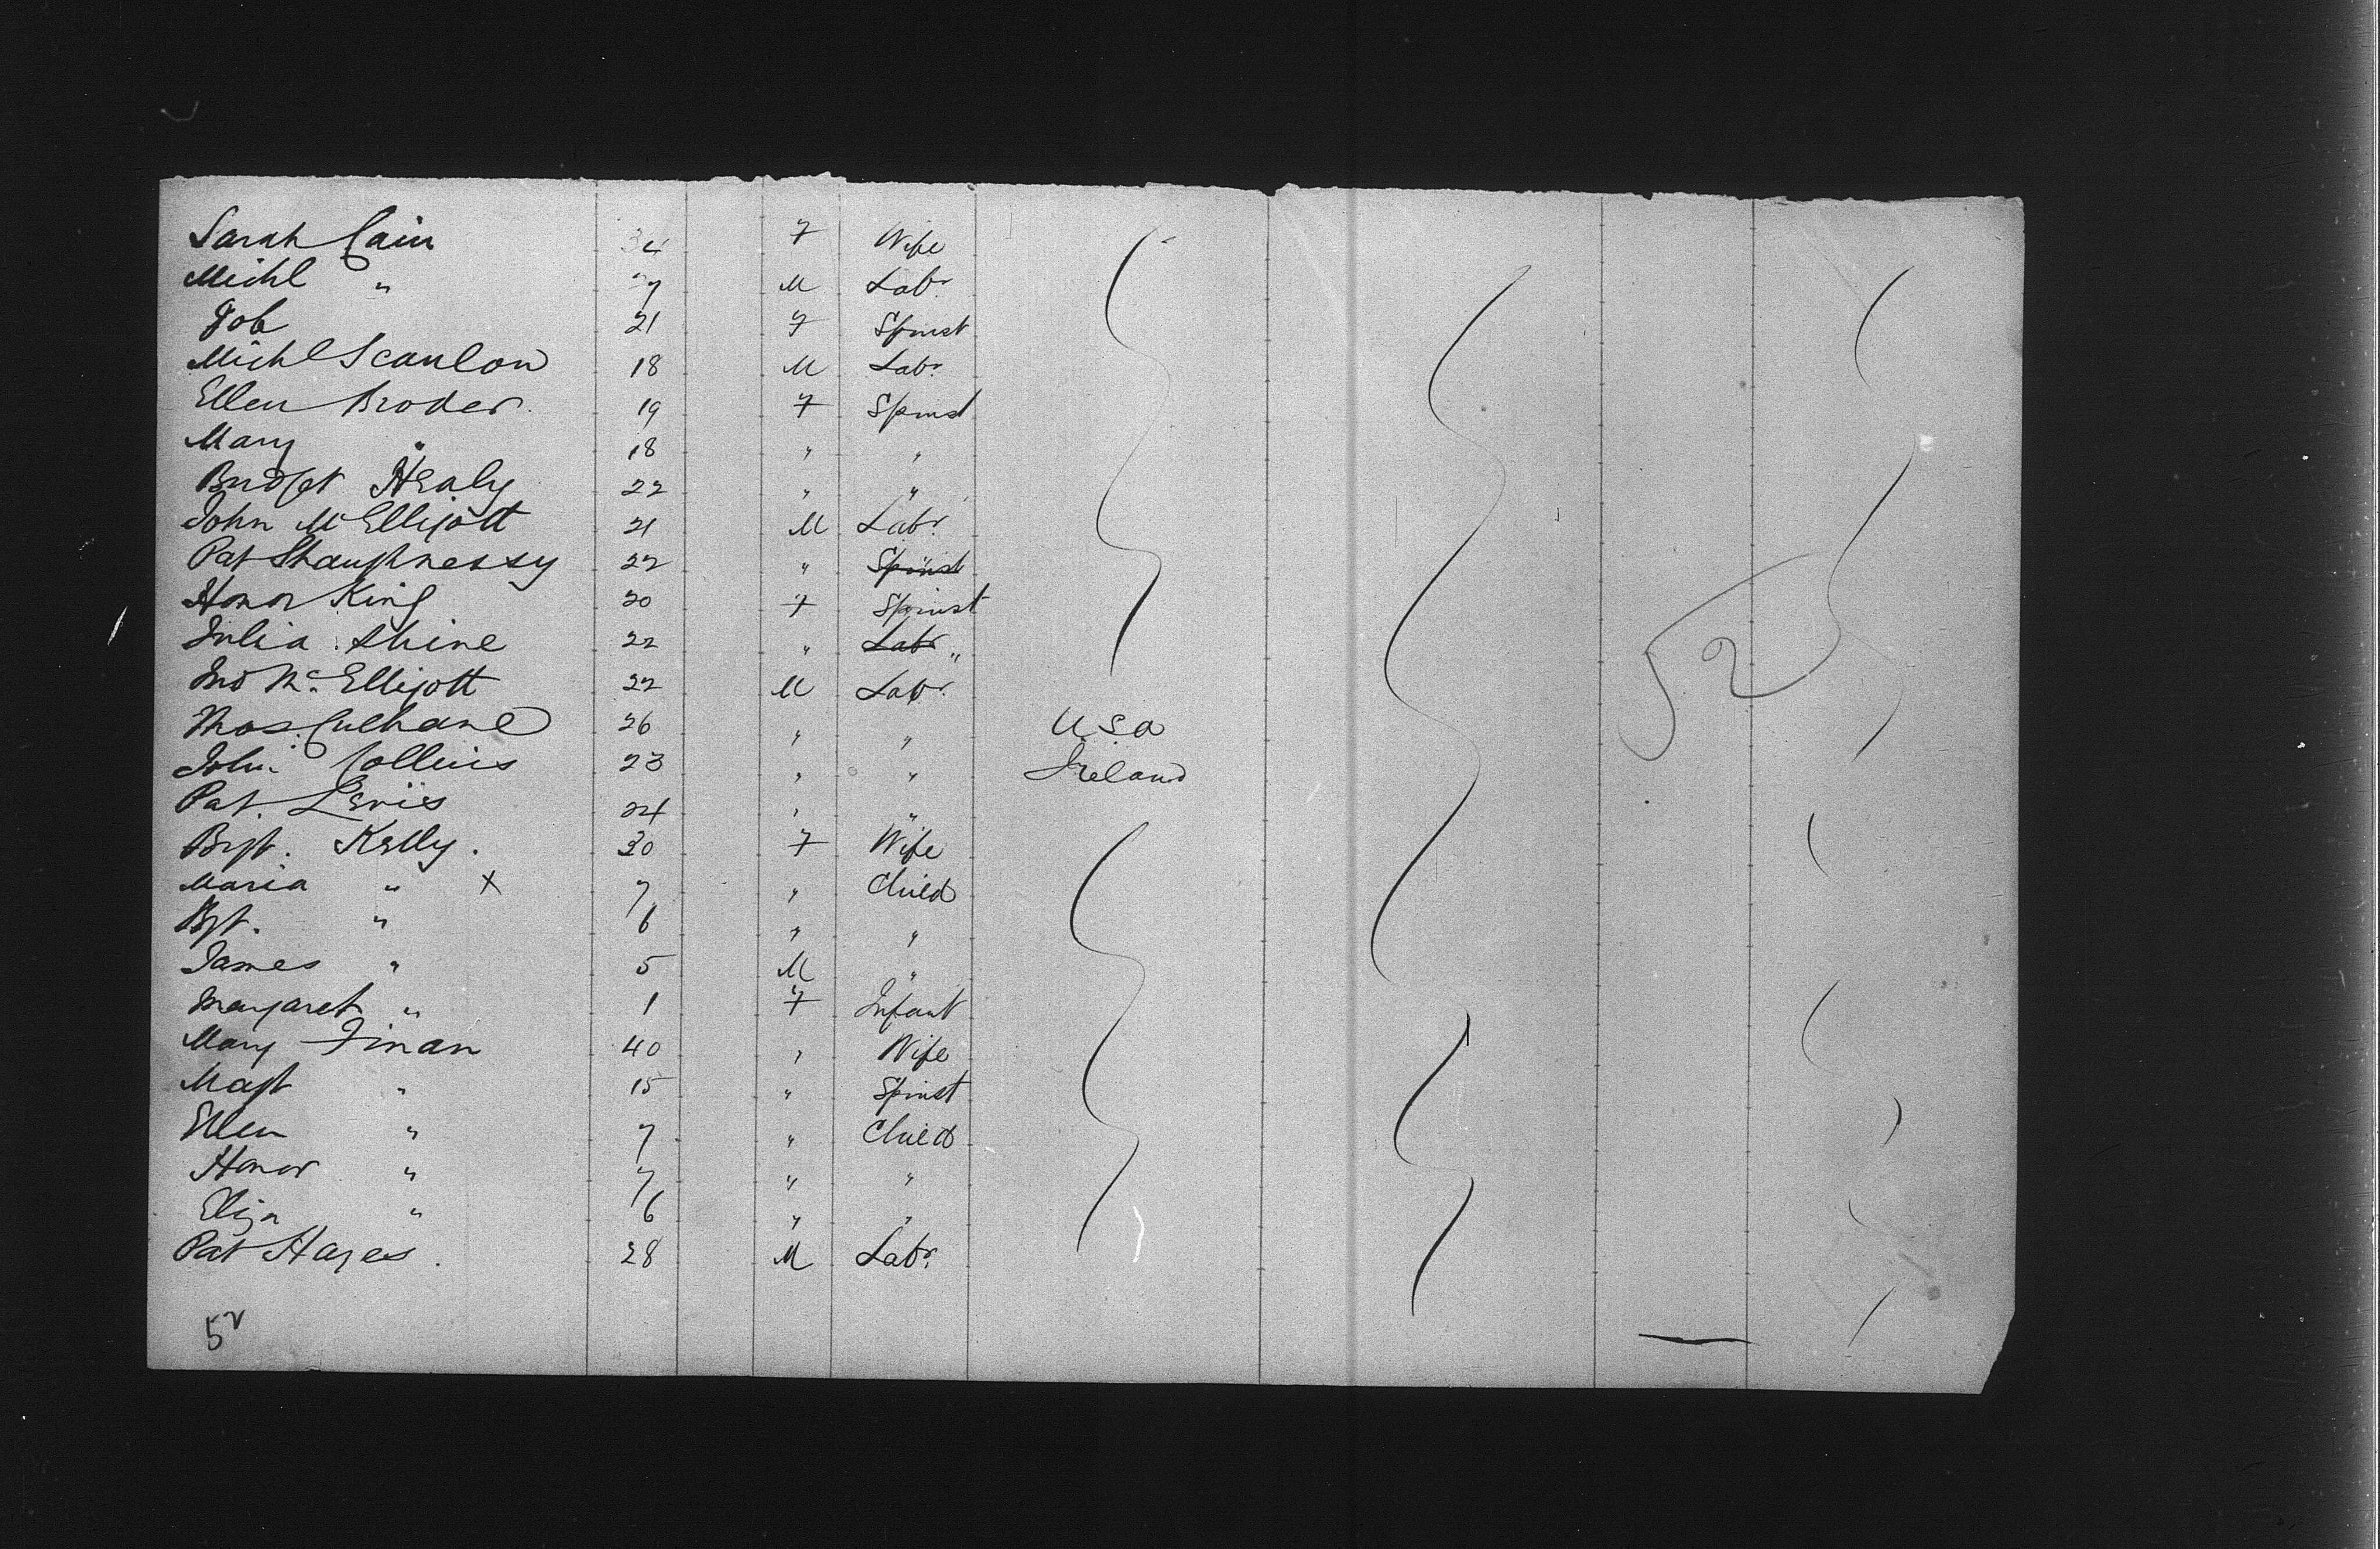 Sarah Cain 34 F Wife
Michl " 7 M Labr
Job 21 F Spinst
Michl Scanlon 18 M Labr
Ellen Broder 19 F Spinst
Mary " 18 " "
Bridget Healy 22 " "
John McElligott 21 M Labr
Pat Shaughnessy 22 " Spinst "
Honor King 20 F Spinst
Julia Shine 22 " Labr "
Jno McElligott 22 M Labr
Thos. Culhane 26 " " USA
John Collins 23 " " Ireland
Pat. 24 " "
Bgt. Kelly. 30 F Wife
Maria " X 7 " Child
Bgt. " 6 " "
James " 5 M "
Margaret " 1 F Infant
Mary Finan 40 " Wife
Magt " 15 " Spinst
Ellen " 7 " Child
Honor " 7 " "
Eliza " 6 " "
Pat Hayes. 28 M Labr.
52
52